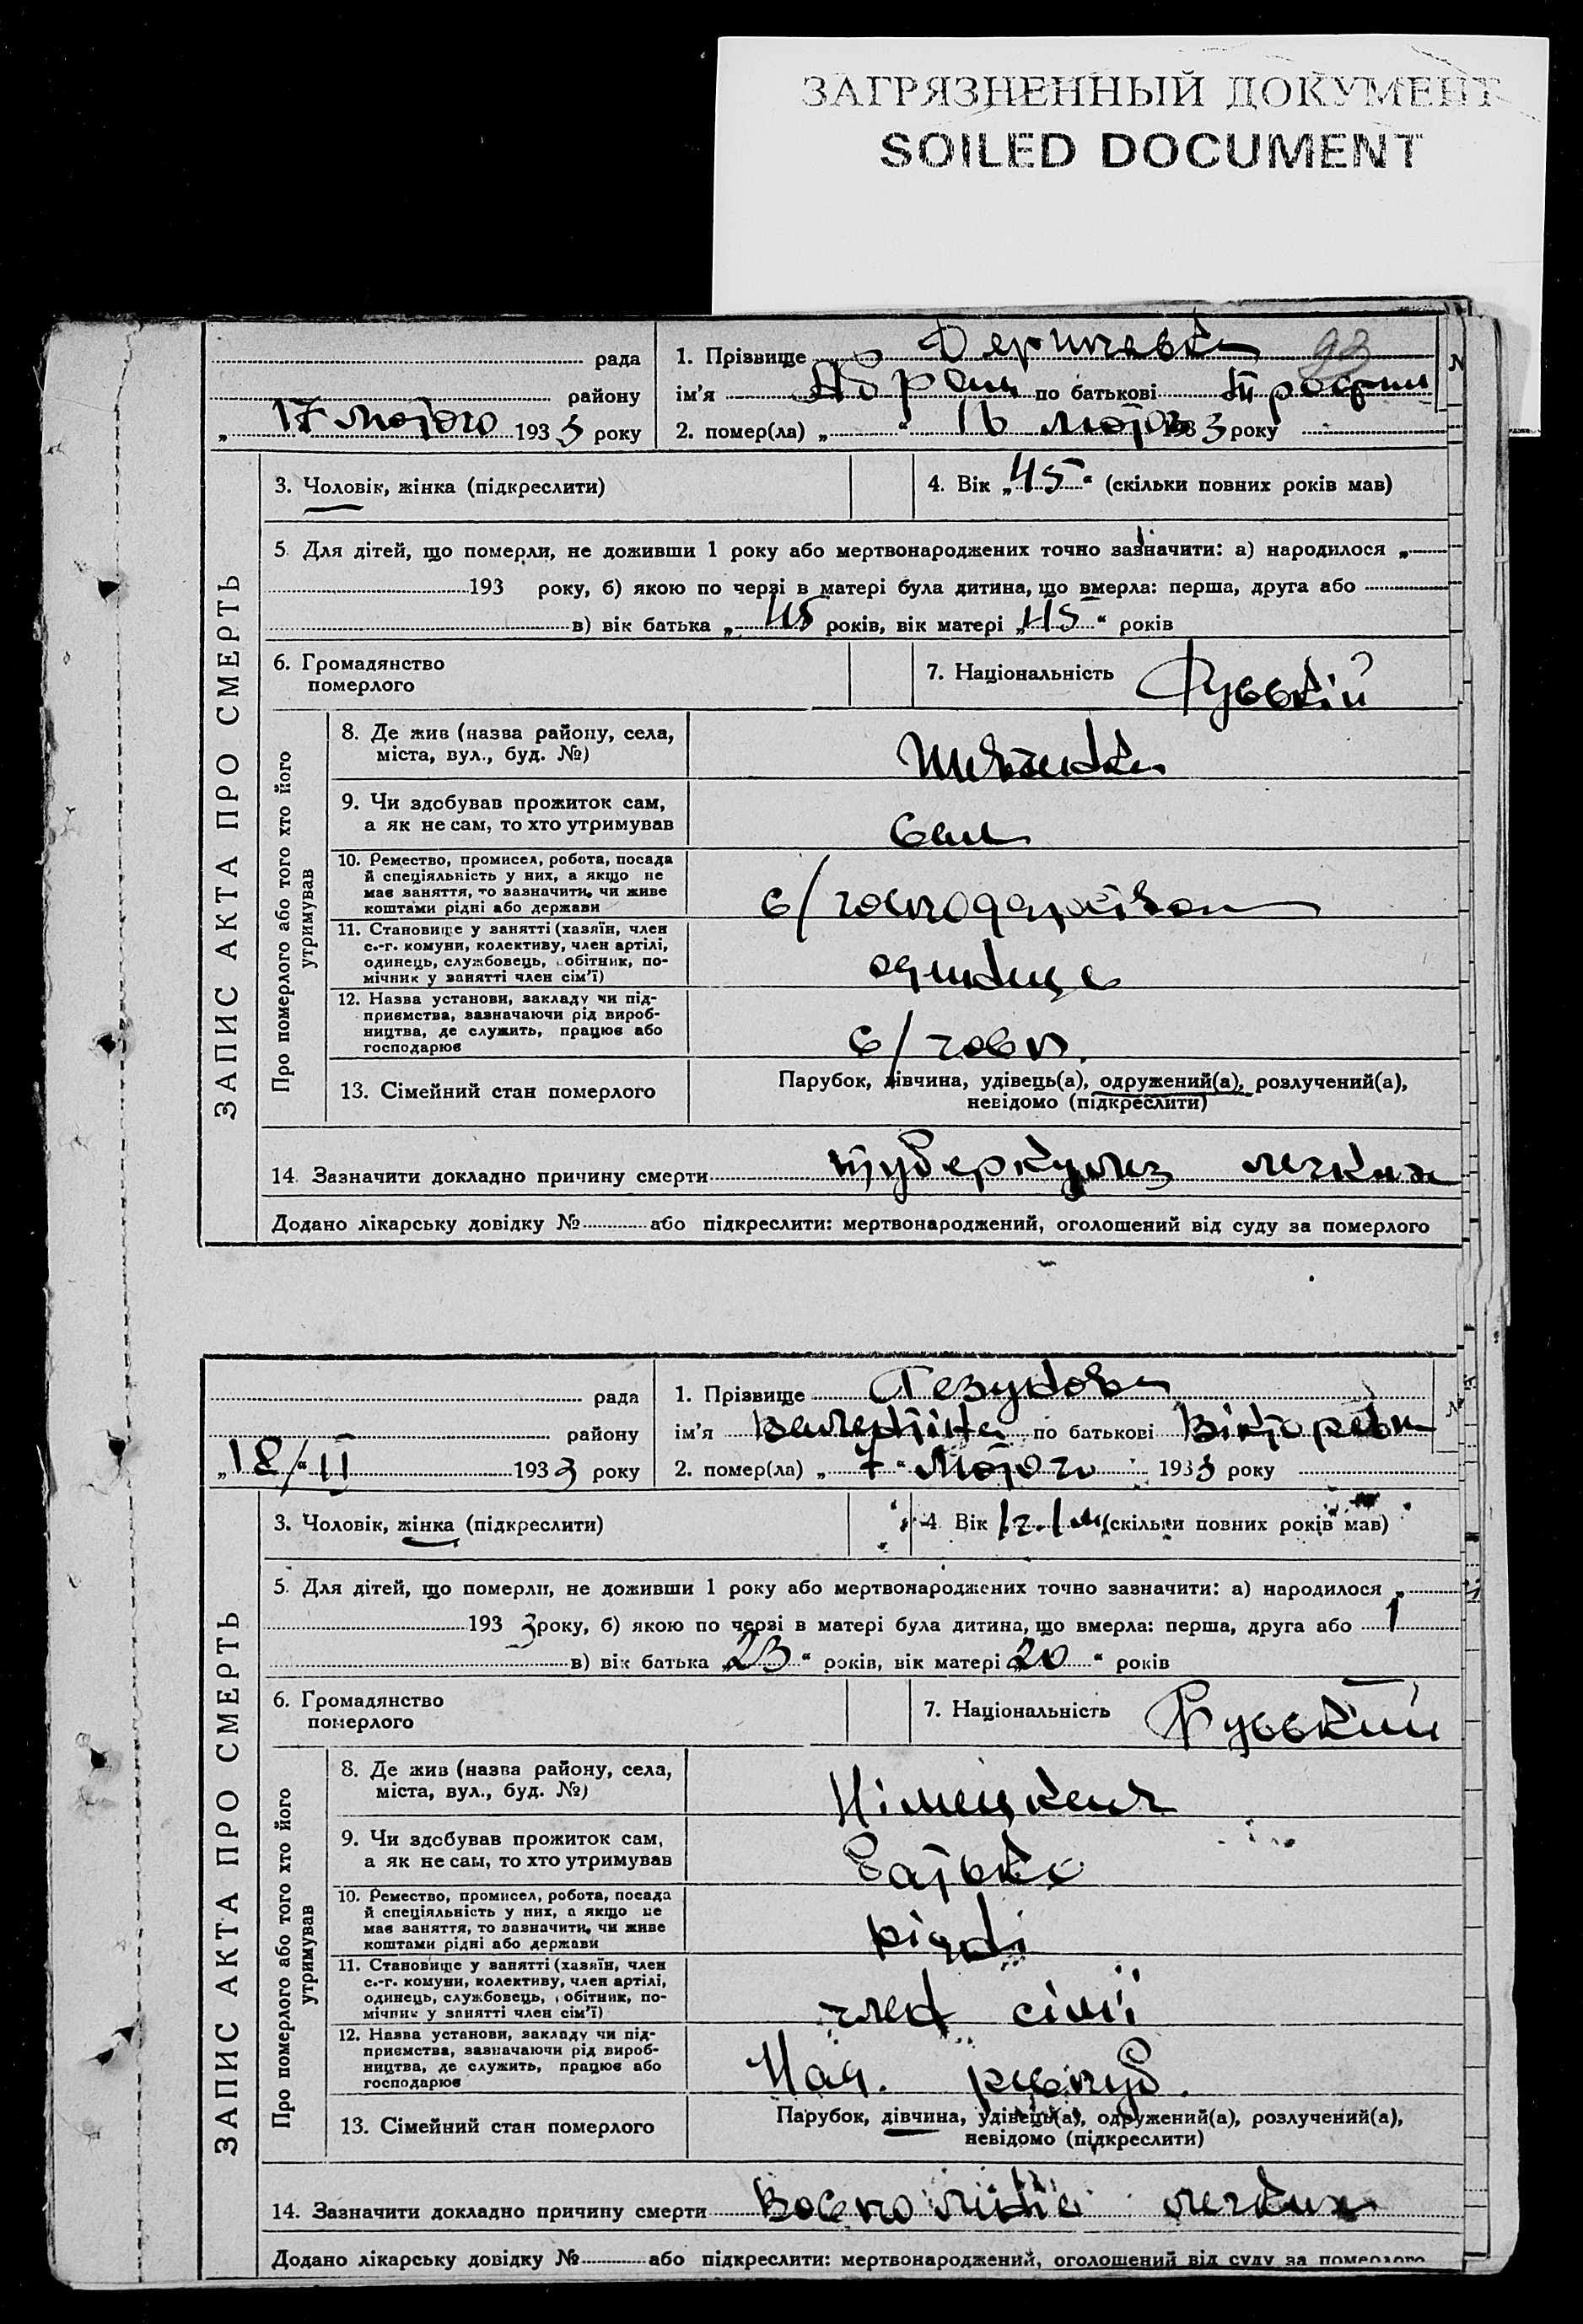 ЗАГРЯЗНЕННЫЙ ДОКУМЕНТ
SOILED DOCUMENT
93
рада
району
17 лютого 1933 року
1. Прізвище
ім'я по батькові
2. помер(ла) „ “ 16 1933 року
ЗАПИС АКТА ПРО СМЕРТЬ
3. Чоловік, жінка (підкреслити)
4. Вік „45“ (скільки повних років мав)
5. Для дітей, що померли, не доживши 1 року або мертвонароджених точно зазначити: а) народилося „
193 року, б) якою по черзі в матері була дитина, що вмерла: перша, друга або
в) вік батька „45 років, вік матері „45“ років
6. Громадянство
померлого
7. Національність Руській
Про померлого або того хто його
утримував
8. Де жив (назва району, села,
міста, вул., буд. №)
9. Чи здобував прожиток сам,
а як не сам, то хто утримував
сам
10. Ремество, промисел, робота, посада
й спеціяльність у них, а якщо не
має заняття, то зазначити, чи живе
коштами рідні або держави
с/господарством
11. Становище у занятті (хазяїн, член
с.-г. комуни, колективу, член артілі,
одинець, службовець, робітник, по-
мічник у занятті член сім'ї)
12. Назва установи, закладу чи під-
приємства, зазначаючи рід вироб-
ництва, де служить, працює або
господарює
с/госп.
13. Сімейний стан померлого
Парубок, дівчина, удівець(а), одружений(а), розлучений(а),
невідомо (підкреслити)
14. Зазначити докладно причину смерти туберкульоз легких
Додано лікарську довідку № або підкреслити: мертвонароджений, оголошений від суду за померлого
рада
району
„18/“ II 1933 року
1. Прізвище
ім'я Валентіна по батькові
2. помер(ла) „7“ Лютого 1933 року
ЗАПИС АКТА ПРО СМЕРТЬ
3. Чоловік, жінка (підкреслити)
4. Вік 1 г. 1 м. (скільки повних років мав)
5. Для дітей, що померли, не доживши 1 року або мертвонароджених точно зазначити: а) народилося „
193 3 року, б) якою по черзі в матері була дитина, що вмерла: перша, друга або 1
в) вік батька „23“ років, вік матері „20“ років
6. Громадянство
померлого
7. Національність Руський
Про померлого або того хто його
утримував
8. Де жив (назва району, села,
міста, вул., буд. №)
9. Чи здобував прожиток сам,
а як не сам, то хто утримував
Батько
10. Ремество, промисел, робота, посада
й спеціяльність у них, а якщо не
має заняття, то зазначити, чи живе
коштами рідні або держави
рідні
11. Становище у занятті (хазяїн, член
с.-г. комуни, колективу, член артілі,
одинець, службовець, робітник, по-
мічник у занятті член сім'ї)
член сімї
12. Назва установи, закладу чи під-
приємства, зазначаючи рід вироб-
ництва, де служить, працює або
господарює
13. Сімейний стан померлого
Парубок, дівчина, удівець(а), одружений(а), розлучений(а),
невідомо (підкреслити)
14. Зазначити докладно причину смерти легких
Додано лікарську довідку № або підкреслити: мертвонароджений, оголошений від суду за померлого